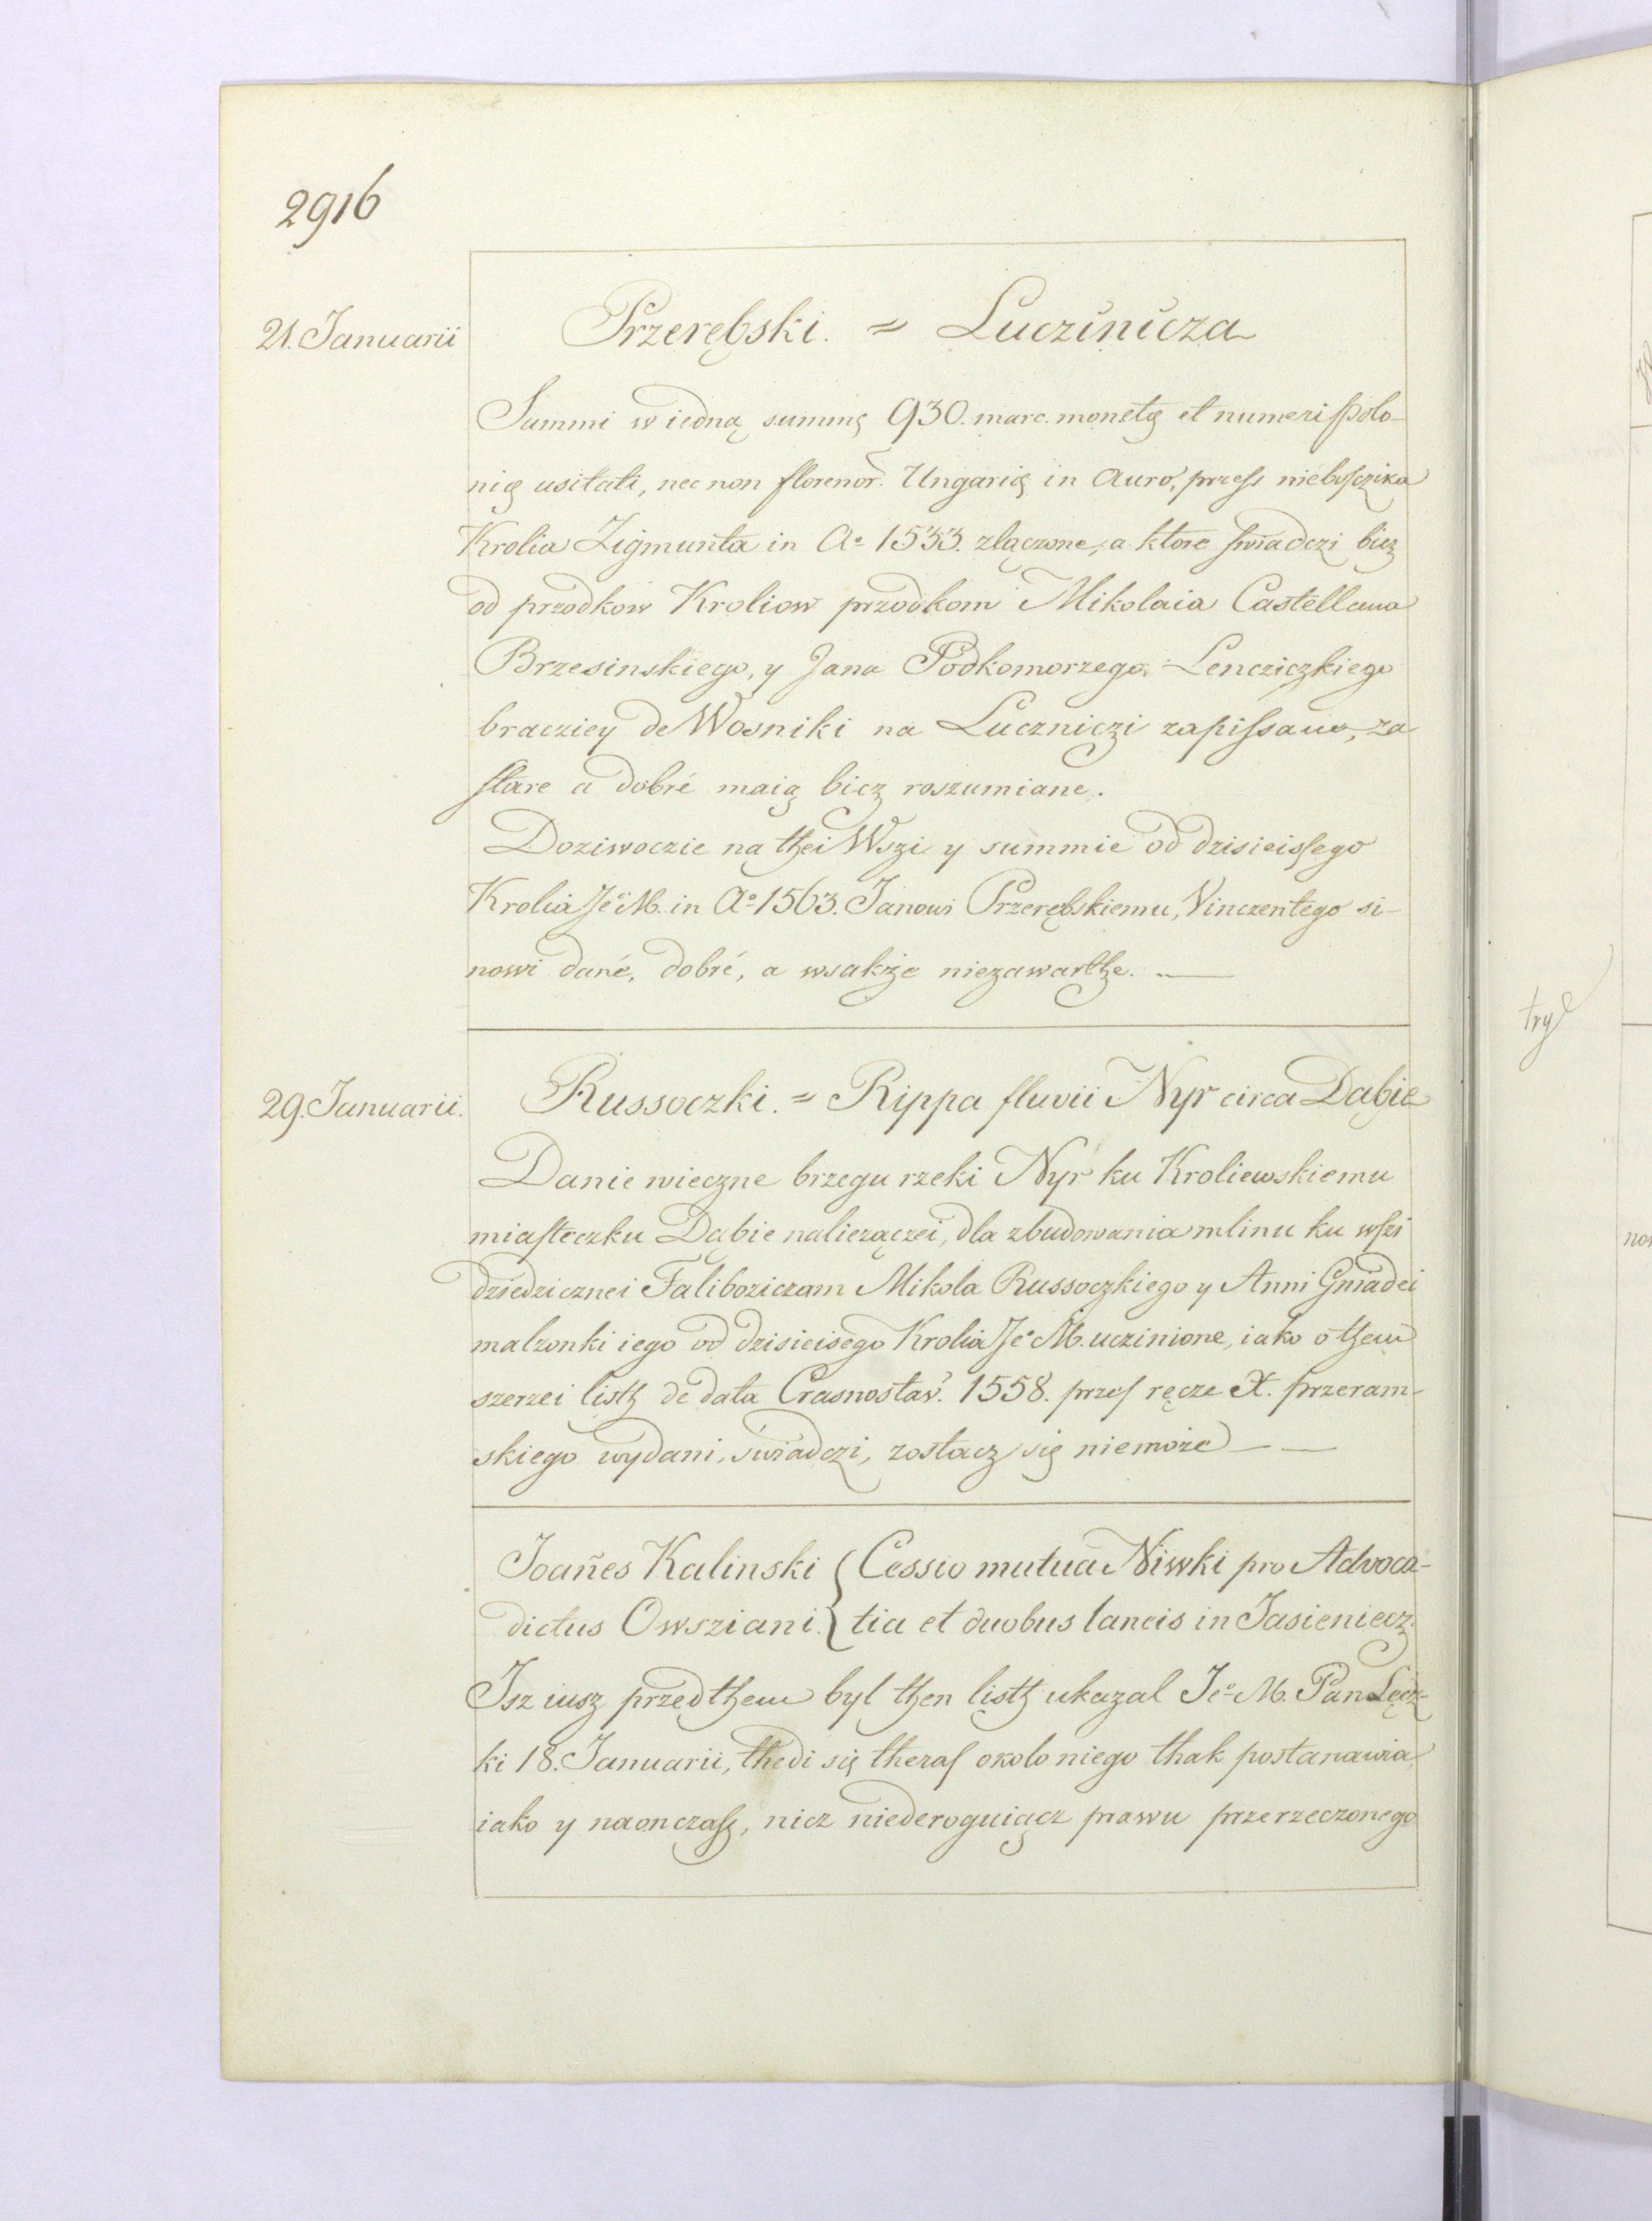 2916
21. Januarii
Przerębski. = Luczinicza
Summi w iedną summę 930. marc. monetę et numeri Polo-
nię usitati, nec non florenor. Ungarię in Auro, przess niebosczika
Krolia Zigmunta in Aº 1533. zlączone, a ktore swiadczi bicz
od przodkow Kroliow przodkom Mikolaia Castellana
Brzesinskiego, y Jana Podkomorzego Lencziczkiego
bracziey de Wosniki na Luczniczi zapissano, za
stare a dobré maią bicz roszumiane.
Doziwoczie na thei Wszi y summie od dzisieissego
Krolia Jeº M. in Aº 1563. Janowi Przerębskiemu, Vinczentego si-
nowi dané, dobré, a wsakże niezawarthe.
29. Januarii.
Russoczki. = Rippa fluvii Nyr circa Dabie
Danie wieczne brzegu rzeki Nyr ku Kroliewskiemu
miasteczku Dąbie naliezączei, dla zbudowania mlinu ku wsi
dziedzicznei Faliboziczam Mikola Russoczkiego y Anni Gniadei
malzonki iego od dzisieisego Krolia Jeº M. uczinione, iako o them
szerzei listh de data Crasnostav. 1558. przes ręcze X. Przeram-
skiego wydani, swiadczi, zostacz się niemoże
Joañes Kalinski { Cessio mutua Niwki pro Advoca-
dictus Owsziani. { tia et duobus laneis in Jasieniecz.
Isz iusz przed them byl then listh ukazal Jeº M. Pan Lęcz-
ki 18. Januarii, thedi się theras okolo niego thak postanawia,
iako y naonczass, nicz niederoguiącz prawu przerzeczonego
try